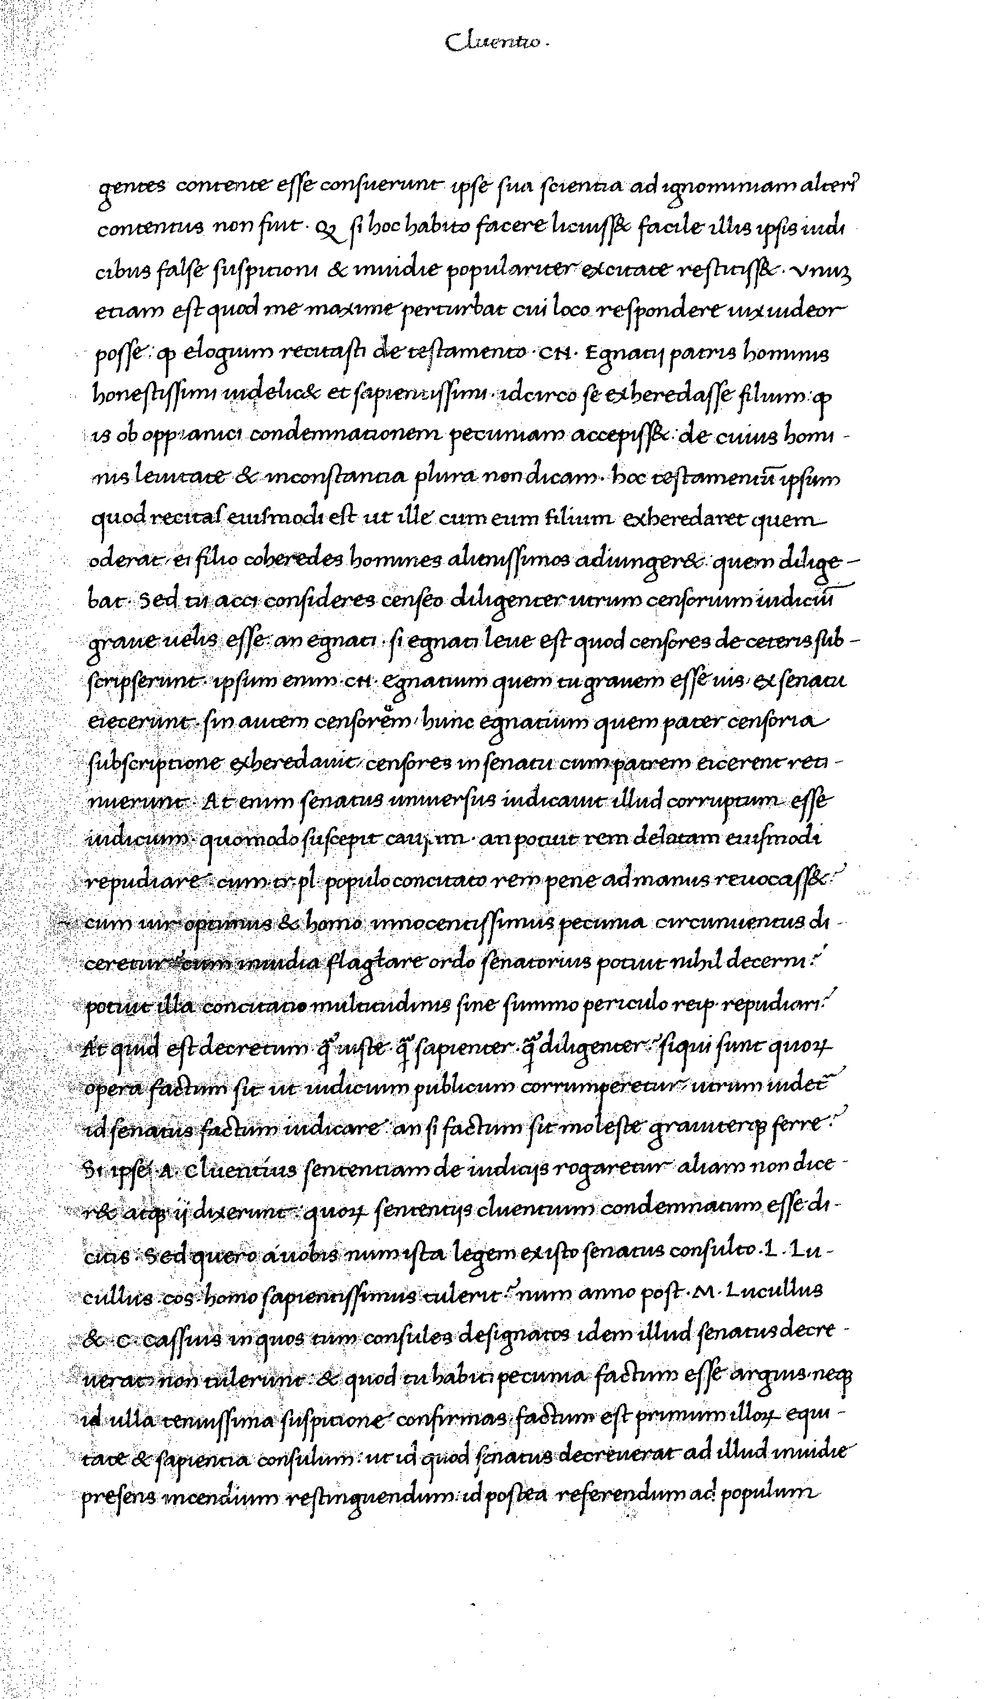 Cluentio.
gentes contente esse consuerunt ipse sua scientia ad ignominiam alteriꝰ
contentus non fuit. Qꝫ si hoc habito facere licuiss& facile illis ipsis iudi
cibus false suspitioni & inuidie populariter excitate restitiss&. vnuꝫ
etiam est quod me maxime perturbat cui loco respondere uix uideor
posse: ꝙ elogium recitasti de testamento. CN. Egnatij patris hominis
honestissimi uidelic& et sapientissimi. idcirco se exheredasse filium: ꝙ
is ob oppianici condemnationem pecuniam accepiss&: de cuius homi-
nis leuitate & inconstantia plura non dicam. hoc testamentū ipsum
quod recitas eiusmodi est ut ille cum eum filium exheredaret quem
oderat, ei filio coheredes homines alienissimos adiunger& quem dilige-
bat. Sed tu acci consideres censeo diligenter utrum censorium iudiciū
graue uelis esse: an egnati. si egnati leue est quod censores de ceteris sub-
scripserunt. ipsum enim. CN. Egnatium quem tu grauem esse uis, ex senatu
eiecerunt. sin autem censorem, hunc egnatium quem pater censoria
subscriptione exheredauit, censores in senatu cum patrem eicerent reti-
nuerunt. At enim senatus uniuersus iudicauit illud corruptum esse
iudicium. quomodo suscepit caūam. an potuit rem delatam eiusmodi
repudiare: cum tr. pl. populo concitato rem pene ad manus reuocass&?
cum uir optimus & homo innocentissimus pecunia circumuentus di-
ceretur: cum inuidia flagtare ordo senatorius potuit nihil decerni?
potuit illa concitatio multitudinis sine summo periculo reip. repudiari?
At quid est decretum ꝗ̃ iuste. ꝗ̃ sapienter. ꝗ̃ diligenter? siqui sunt quoꝝ
opera factum sit ut iudicium publicum corrumperetur, utrum uidet᷑
id senatus factum iudicare an si factum sit moleste grauiterqꝫ ferre?
Si ipse. A. Cluentius sententiam de iudicijs rogaretur aliam non dice-
r& atqꝫ ij dixerunt: quoꝝ sententijs cluentium condemnatum esse di-
citis. Sed quero a uobis num ista legem ex isto senatus consulto. L. Lu-
cullus cos. homo sapientissimus tulerit? num anno post. M. Lucullus
& C. Cassius in quos tum consules designatos idem illud senatus decre-
uerat. non tulerunt: & quod tu habiti pecunia factum esse arguis neqꝫ
id ulla tenuissima suspicione confirmas, factum est primum illoꝝ equi-
tate & sapientia consulum: ut id quod senatus decreuerat ad illud inuidie
presens incendium restinguendum. id postea referendum ad populum